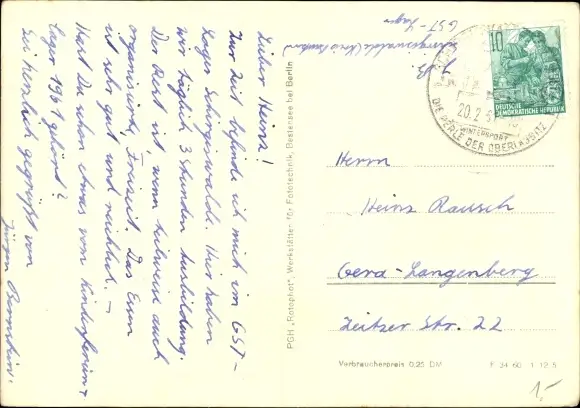 Lieber Heinz!
Zur Zeit befinde ich mich im GST-
Lager Schirgiswalde. Hier haben
wir täglich 3 Stunden Ausbildung.
Der Rest ist, wenn teilweise auch
organisierte, Freizeit. Das Essen
ist sehr gut und reichlich. –
Hast Du schon etwas vom Kinderferien-
lager 1961 gehört?
Sei herzlich gegrüßt von
Jürgen
z. Z.
GST-Lager
PGH „Rotophot", Werkstätten für Fototechnik, Bestensee bei Berlin
10
DEUTSCHE
DEMOKRATISCHE REPUBLIK
20.2.
WINTERSPORT
DIE PERLE DER OBERLAUSITZ
Herrn
Heinz Rausch
Gera-Langenberg
Zeitzer Str. 22
Verbraucherpreis 0,25 DM
F 34 60 1 12 5
1,-